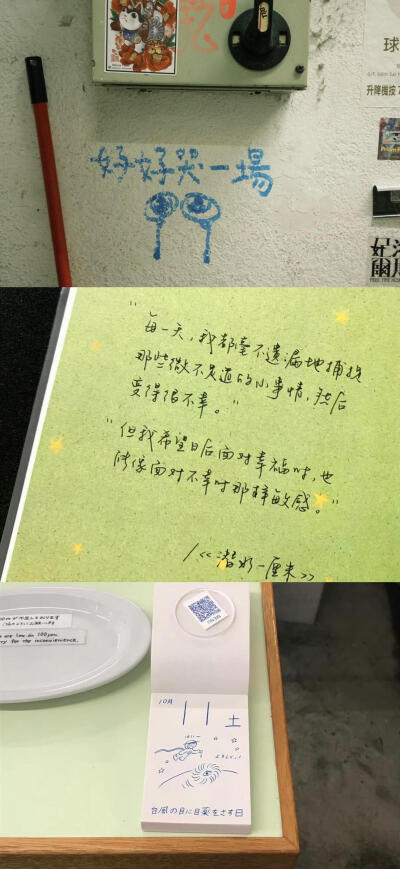 好好哭一場
球
升降機按7
“每一天，我都毫不遗漏地捕捉
那些微不足道的小事情，然后
变得很不幸。”
“但我希望日后面对幸福时，也
能像面对不幸时那样敏感。”
/《潜好一厘米》
are low on 100yen.
ry for the inconvenience.
10月
11 土
台風の目に目薬をさす日